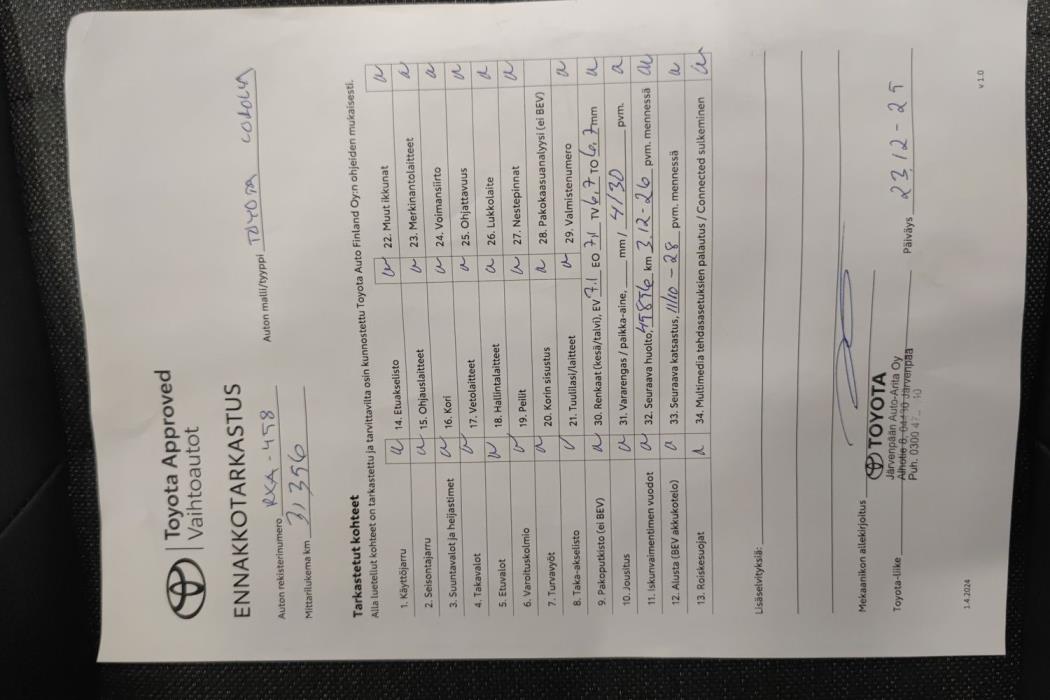 Toyota Approved
Vaihtoautot
ENNAKKOTARKASTUS
Auton rekisterinumero RXA-458 Auton malli/tyyppi TOYOTA COROLLA
Mittarilukema km 31356
Tarkastetut kohteet
Alla luetellut kohteet on tarkastettu ja tarvittavilta osin kunnostettu Toyota Auto Finland Oy:n ohjeiden mukaisesti.
1. Käyttöjarru
2. Seisontajarru
3. Suuntavalot ja heijastimet
4. Takavalot
5. Etuvalot
6. Varoituskolmio
7. Turvavyöt
8. Taka-akselisto
9. Pakoputkisto (ei BEV)
10. Jousitus
11. Iskunvaimentimen vuodot
12. Alusta (BEV akkukotelo)
13. Roiskesuojat
14. Etuakselisto
15. Ohjauslaitteet
16. Kori
17. Vetolaitteet
18. Hallintalaitteet
19. Peilit
20. Korin sisustus
21. Tuulilasi/laitteet
22. Muut ikkunat
23. Merkinantolaitteet
24. Voimansiirto
25. Ohjattavuus
26. Lukkolaite
27. Nestepinnat
28. Pakokaasuanalyysi (ei BEV)
29. Valmistenumero
30. Renkaat (kesä/talvi), EV 7.1 EO 7,1 TV 6,7 TO 6,7 mm
31. Vararengas / paikka-aine, mm / 4/30 pvm.
32. Seuraava huolto, 45856 km 3.12-26 pvm. mennessä
33. Seuraava katsastus, 11/10-28 pvm. mennessä
34. Multimedia tehdasasetuksien palautus / Connected sulkeminen
Lisäselvityksiä:
Mekaanikon allekirjoitus
TOYOTA
Järvenpään Auto-Arita Oy
Toyota-liike Alhotie 8, 04430 Järvenpää Päiväys 23,12-25
Puh. 0300
1.4.2024 v 1.0